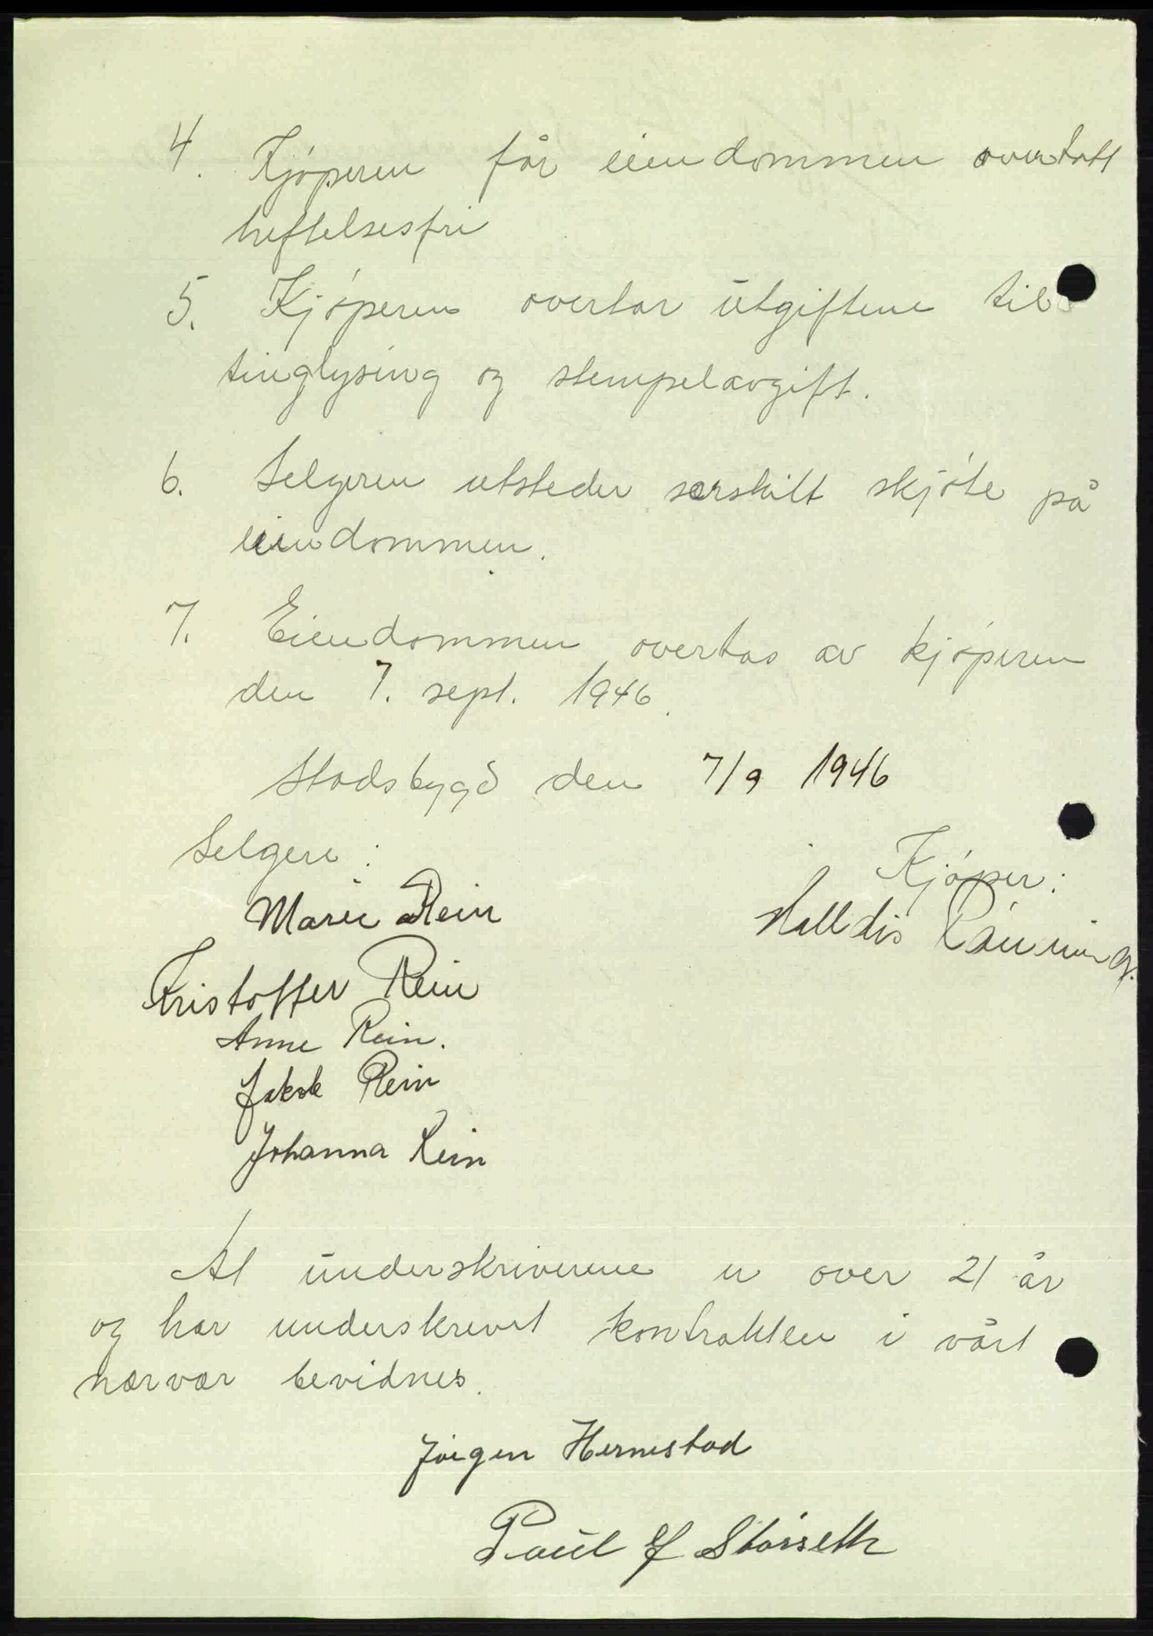 4. Kjøperen får eiendommen overtatt
heftelsesfri
5. Kjøperen overtar utgiftene til
tinglysing og stempelavgift.
6. Selgeren utsteder særskilt skjøte på
eiendommen.
7. Eiendommen overtas av kjøperen
den 7. sept. 1946.
Stadsbygd den 7/9 1946
Selgere: Kjøper:
Marie Rein Halldis Rønning.
Kristoffer Rein
Anne Rein.
Jakob Rein
Johanna Rein
At underskriverene er over 21 år
og har underskrevet kontrakten i vårt
nærvær bevidnes.
Jørgen Hernestad
Paul Størseth